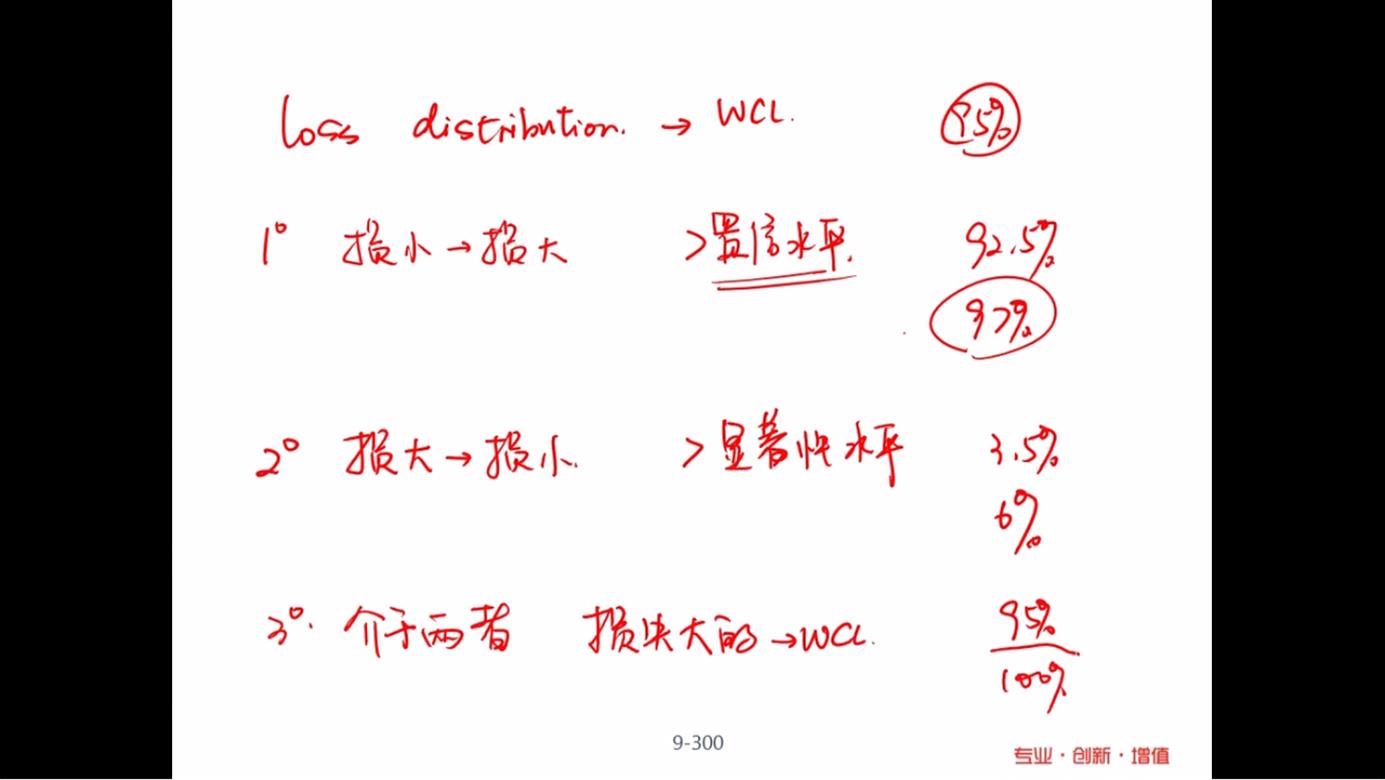 Loss distribution. → WCL. 95%
1° 损小 → 损大 > 置信水平. 92.5%
97%
2° 损大 → 损小. > 显著性水平 3.5%
6%
3°. 介于两者 损失大的 → WCL. 95%
100%
9-300
专业·创新·增值